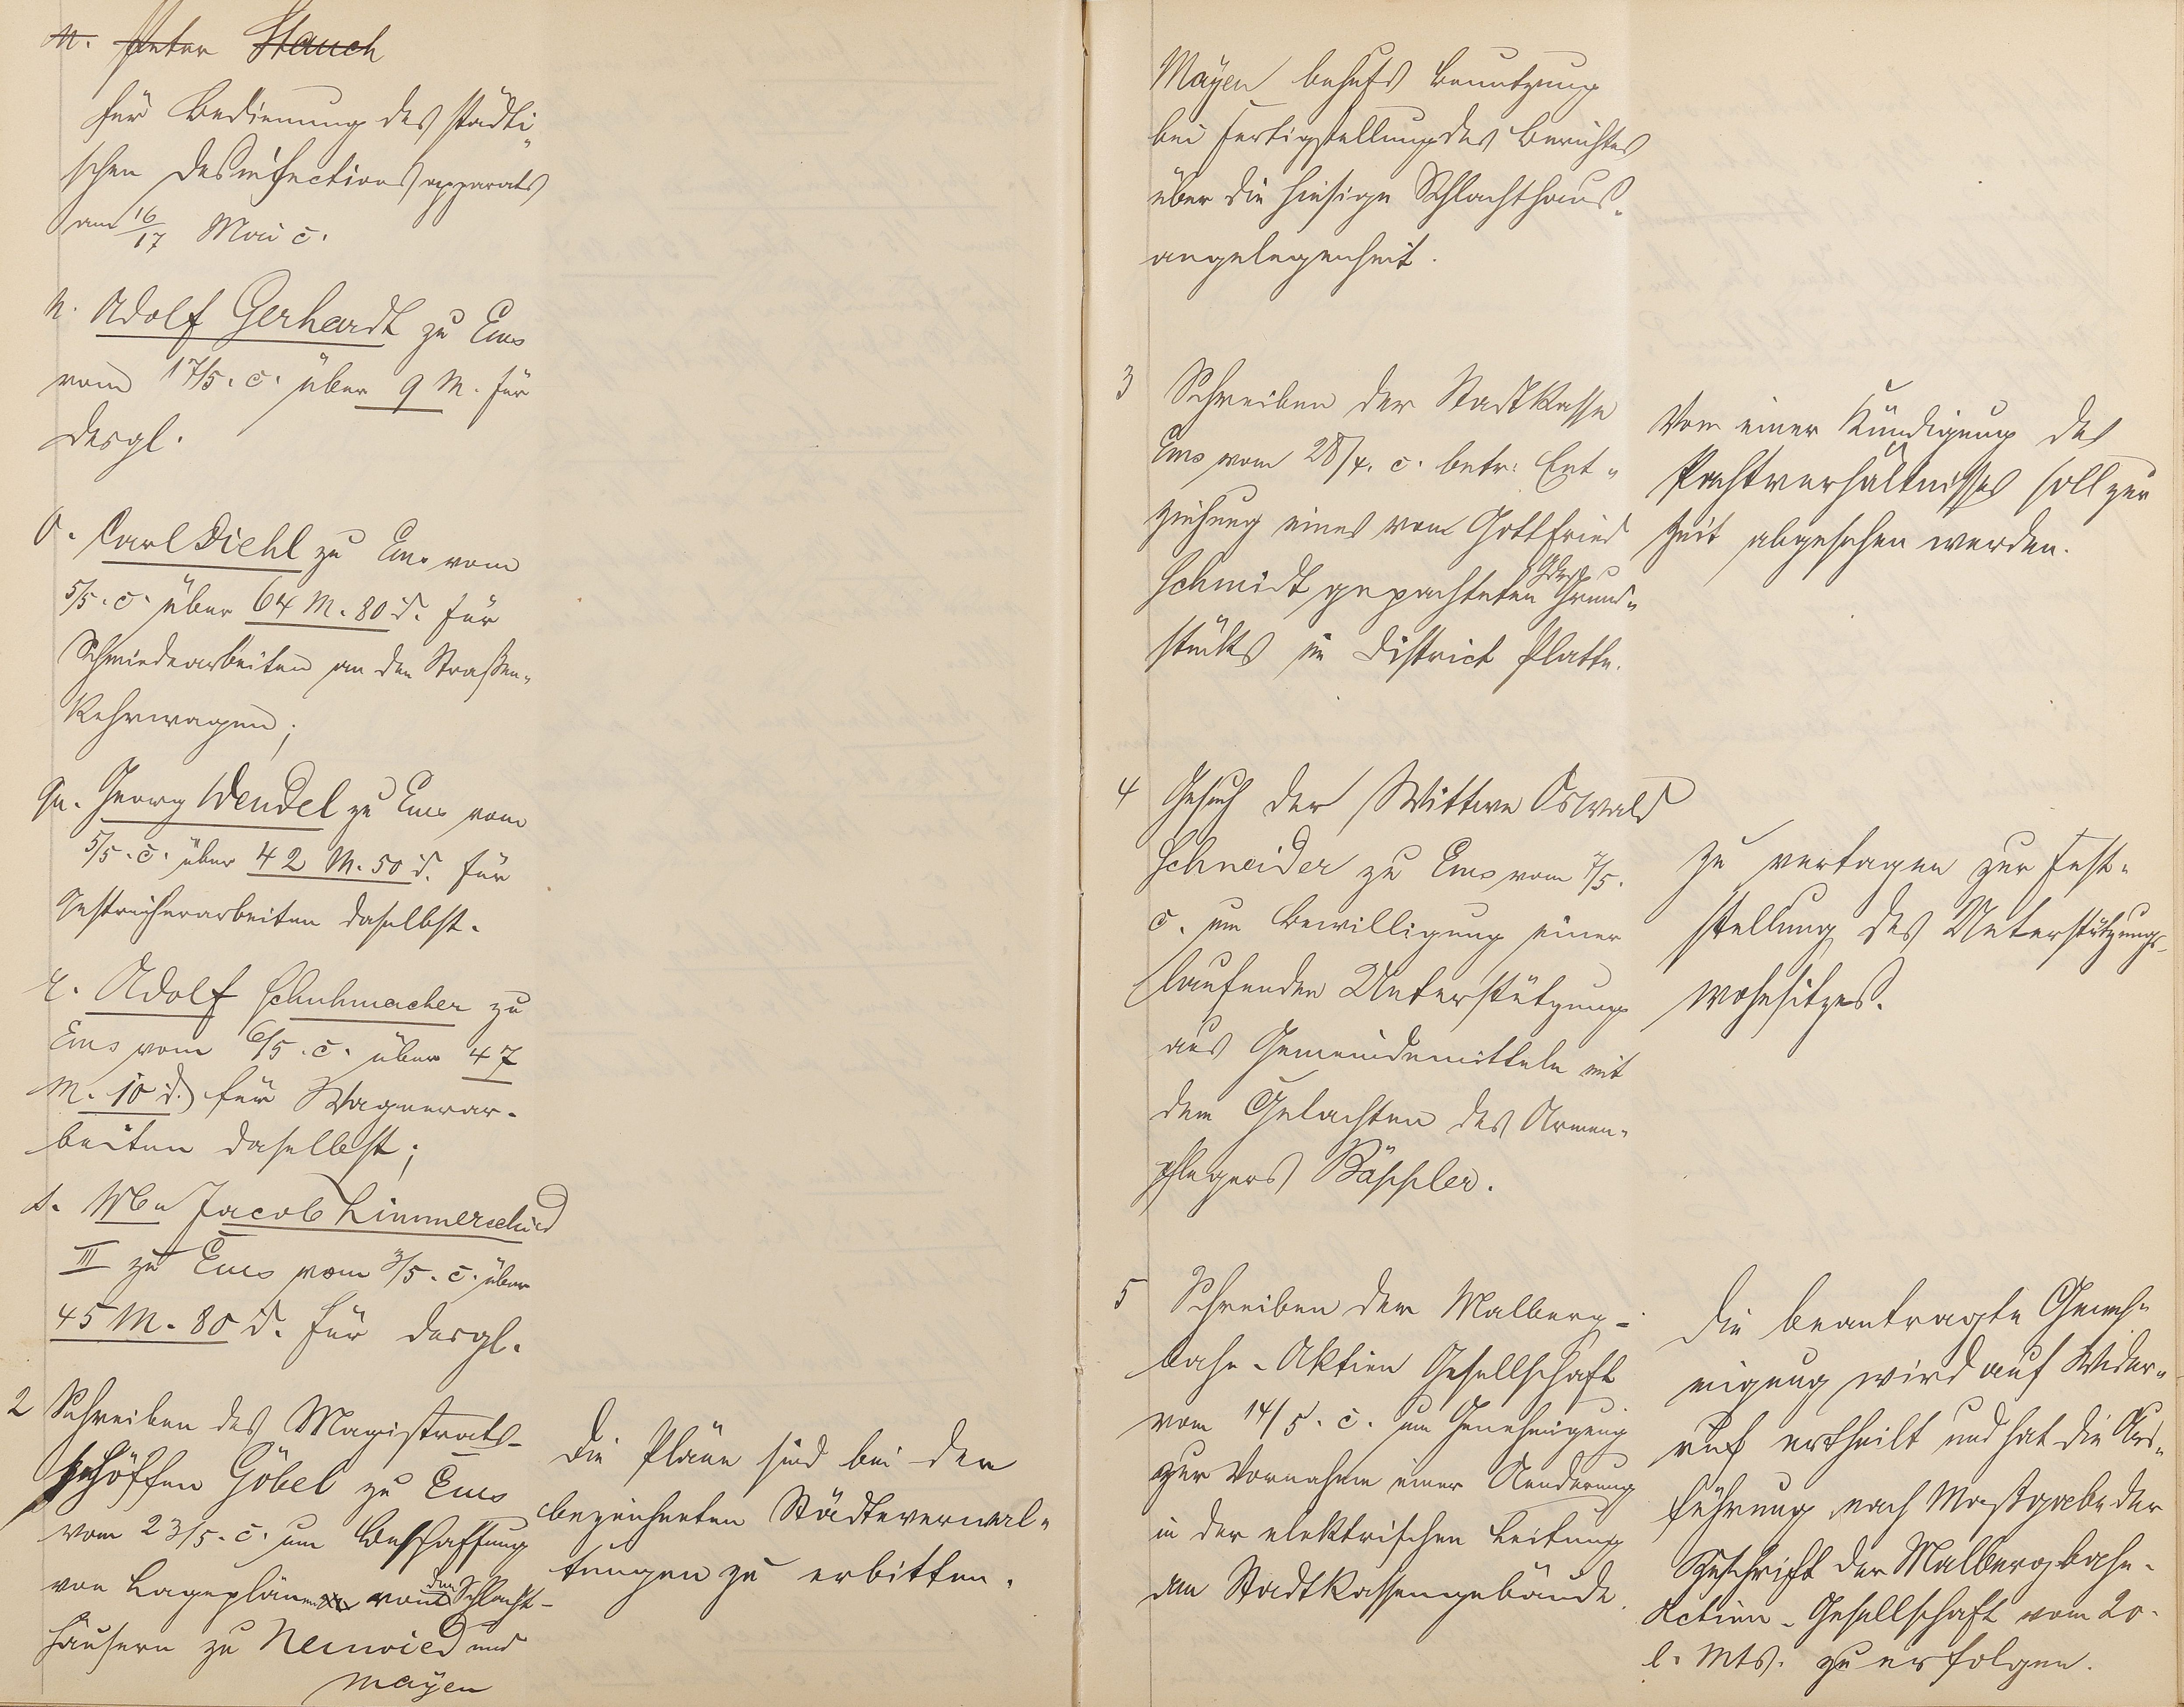 n. Peter Stauch
für Bedienung des städti„
schen Desinfectionsapparats
am 16/17 Mai c.
n. Adolf Gerhardt zu Ems
vom 17/5. c. über 9 M. für
desgl.
o. Carl Diehl zu Ems vom
5/5. c. über 64 M. 80 d. für
Schmiedearbeiten an den Straßen„
Kehrwagen;
qu. Georg Wendel zu Ems vom
5/5. c. über 42 M. 50 d. für
Gestricherarbeiten daselbst.
r. Adolf Schuhmacher zu
Ems vom 6/5. c. über 47
M. 10 d. für Wagnerar-
beiten daselbst;
s. Wwe Jacob Linnerschied
III zu Ems vom 3/5. c. über
45 M. 80 d. für desgl.
2 Schreiben des Magistrats-
schöffen Göbel zu Ems
vom 23/5. c. um Beschaffung
von Lageplänen von den Schlacht-
häusern zu Neuwied und
Mayen
Die Pläne sind bei den
bezeichneten Städteverwal„
tungen zu erbitten.
Mayen behufs Benutzung
bei Fertigstellung des Berichtes
über die hiesige Schlachthaus„
angelegenheit.
3 Schreiben der Stadtkasse
Ems vom 28/4. c. betr. Ent„
ziehung eines vom Gottfried
Schmidt gepachteten Grund„
stücks im District Platte.
Von einer Kündigung des
Pachtverhältnisses soll zur
Zeit abgesehen werden.
4 Gesuch der Wittwe Oswald
Schneider zu Ems vom 7/5.
c. um Bewilligung einer
laufenden Unterstützung
aus Gemeindemitteln mit
dem Gutachten des Armen„
pflegers Bäppler.
Zu vertagen zur Fest„
stellung des Unterstützungs-
wohnsitzes.
5 Schreiben der Malberg-
bahn-Aktien Gesellschaft
vom 14/5. c. um Genehmigung
zur Vornahme einer Aenderung
in der elektrischen Leitung
am Stadtkassengebäude.
Die beantragte Geneh„
migung wird auf Wider„
ruf ertheilt und hat die Aus„
führung nach Maßgabe der
Zuschrift der Malbergbahn-
Actien-Gesellschaft vom 20.
l. Mts. zu erfolgen.